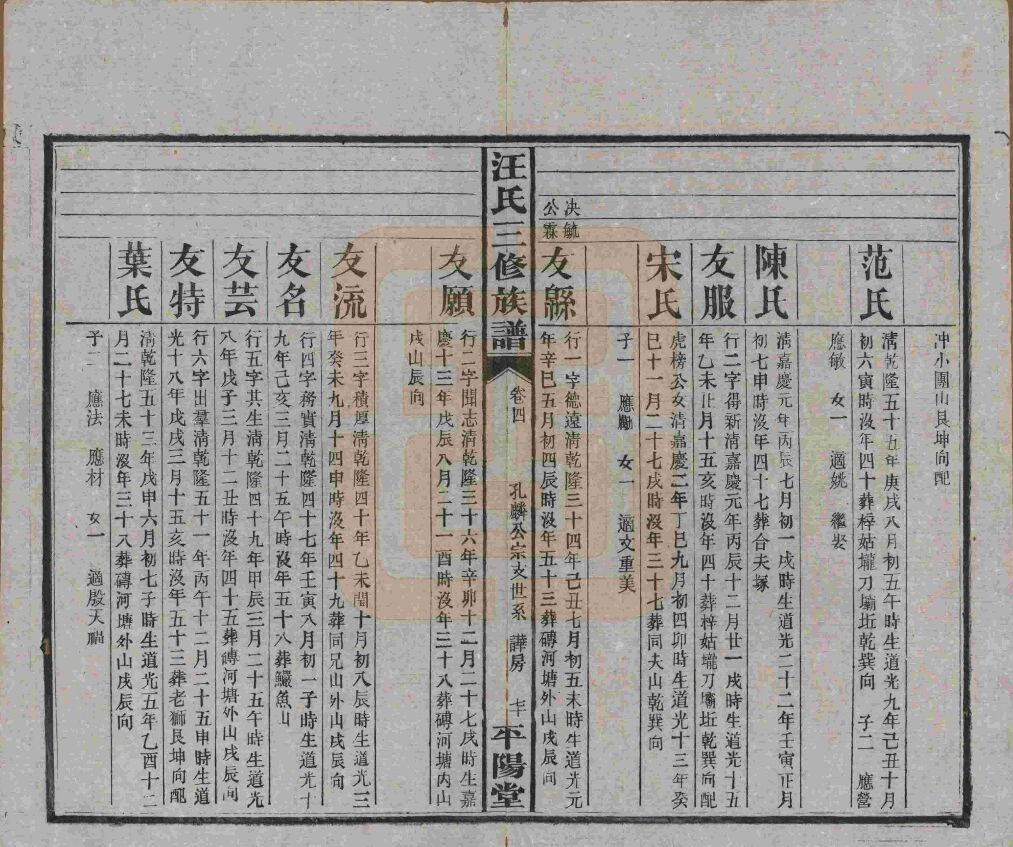 冲小團山艮坤向配
范氏
清乾隆五十五年庚戌八月初五午時生道光九年己丑十月
初六寅時沒年四十葬梓姑壠刀壩坵乾巽向 子二 應營
應敏 女一 適姚 繼娶
陳氏
清嘉慶元年丙辰七月初一戌時生道光二十二年壬寅正月
初七申時沒年四十七葬合夫塚
友服
行二字得新清嘉慶元年丙辰十二月廿一戌時生道光十五
年乙未正月十五亥時沒年四十葬梓姑壠刀壩坵乾巽向配
宋氏
虎榜公女清嘉慶二年丁巳九月初四卯時生道光十三年癸
巳十一月二十七戌時沒年三十七葬同夫山乾巽向
子一 應勵 女一 適文重美
決毓
公霖
友縣
行一字德遠清乾隆三十四年己丑七月初五未時生道光元
年辛巳五月初四辰時沒年五十三葬磚河塘外山戌辰向
汪氏三修族譜
卷四
孔麟公宗支世系 譁房
平陽堂
友願
行二字聞志清乾隆三十六年辛卯十二月二十七戌時生嘉
慶十三年戊辰八月二十一酉時沒年三十八葬磚河塘內山
戌山辰向
友流
行三字積厚清乾隆四十年乙未閏十月初八辰時生道光三
年癸未九月十四申時沒年四十九葬同兄山外山戌辰向
友名
行四字務實清乾隆四十七年壬寅八月初一子時生道光十
九年己亥三月二十五午時沒年五十八葬鱺魚山
友芸
行五字其生清乾隆四十九年甲辰三月二十五午時生道光
八年戊子三月十二丑時沒年四十五葬磚河塘外山戌辰向
友特
行六字出羣清乾隆五十一年丙午十二月二十五申時生道
光十八年戊戌三月十五亥時沒年五十三葬老獅艮坤向配
葉氏
清乾隆五十三年戊申六月初七子時生道光五年乙酉十二
月二十七未時沒年三十八葬磚河塘外山戌辰向
子二 應法 應材 女一 適殷天福